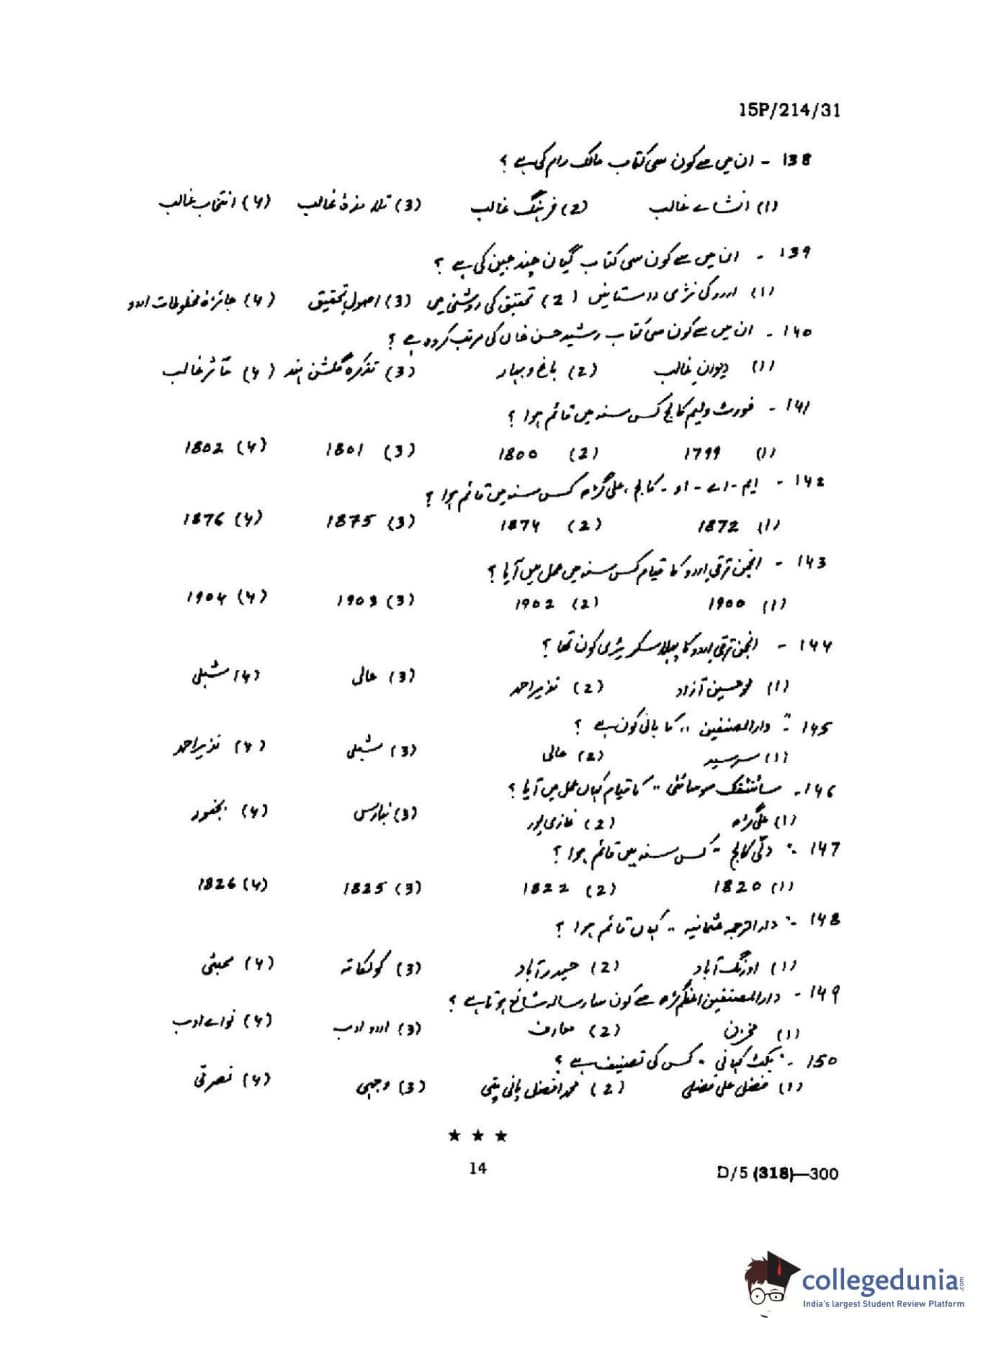 15P/214/31
138 - ان میں سے کون سی کتاب مالک رام کی ہے ؟
(1) انشاے غالب (2) فرہنگ غالب (3) تلامذۂ غالب (4) انتخاب غالب
139 - ان میں سے کون سی کتاب گیان چند جین کی ہے ؟
(1) اردو کی نثری داستانیں (2) تحقیق کی روشنی میں (3) اصول تحقیق (4) جائزہ مخطوطات اردو
140 - ان میں سے کون سی کتاب رشید حسن خاں کی مرتب کردہ ہے ؟
(1) دیوان غالب (2) باغ و بہار (3) تذکرہ گلشن ہند (4) مآثر غالب
141 - فورٹ ولیم کالج کس سنہ میں قائم ہوا ؟
(1) 1799 (2) 1800 (3) 1801 (4) 1802
142 - ایم - اے - او - کالج ، علی گڑھ کس سنہ میں قائم ہوا ؟
(1) 1872 (2) 1874 (3) 1875 (4) 1876
143 - انجمن ترقی اردو کا قیام کس سنہ میں عمل میں آیا ؟
(1) 1900 (2) 1902 (3) 1903 (4) 1904
144 - انجمن ترقی اردو کا پہلا سکریٹری کون تھا ؟
(1) محمد حسین آزاد (2) نذیر احمد (3) حالی (4) شبلی
145 - " دارالمصنفین " کا بانی کون ہے ؟
(1) سرسید (2) حالی (3) شبلی (4) نذیر احمد
146 - سائنٹفک سوسائٹی " کا قیام کہاں عمل میں آیا ؟
(1) علی گڑھ (2) غازی پور (3) بنارس (4) بجنور
147 - " دلّی کالج " کس سنہ میں قائم ہوا ؟
(1) 1820 (2) 1822 (3) 1825 (4) 1826
148 - " دارالترجمہ عثمانیہ " کہاں قائم ہوا ؟
(1) اورنگ آباد (2) حیدرآباد (3) کولکاتہ (4) ممبئی
149 - دارالمصنفین اعظم گڑھ سے کون سا رسالہ شائع ہوتا ہے ؟
(1) مخزن (2) معارف (3) اردو ادب (4) نواے ادب
150 - " بکٹ کہانی " کس کی تصنیف ہے ؟
(1) فضل علی فضلی (2) محمد افضل پانی پتی (3) وجہی (4) نصرتی
★ ★ ★
14
D/5 (318)—300
collegedunia.com
India's largest Student Review Platform